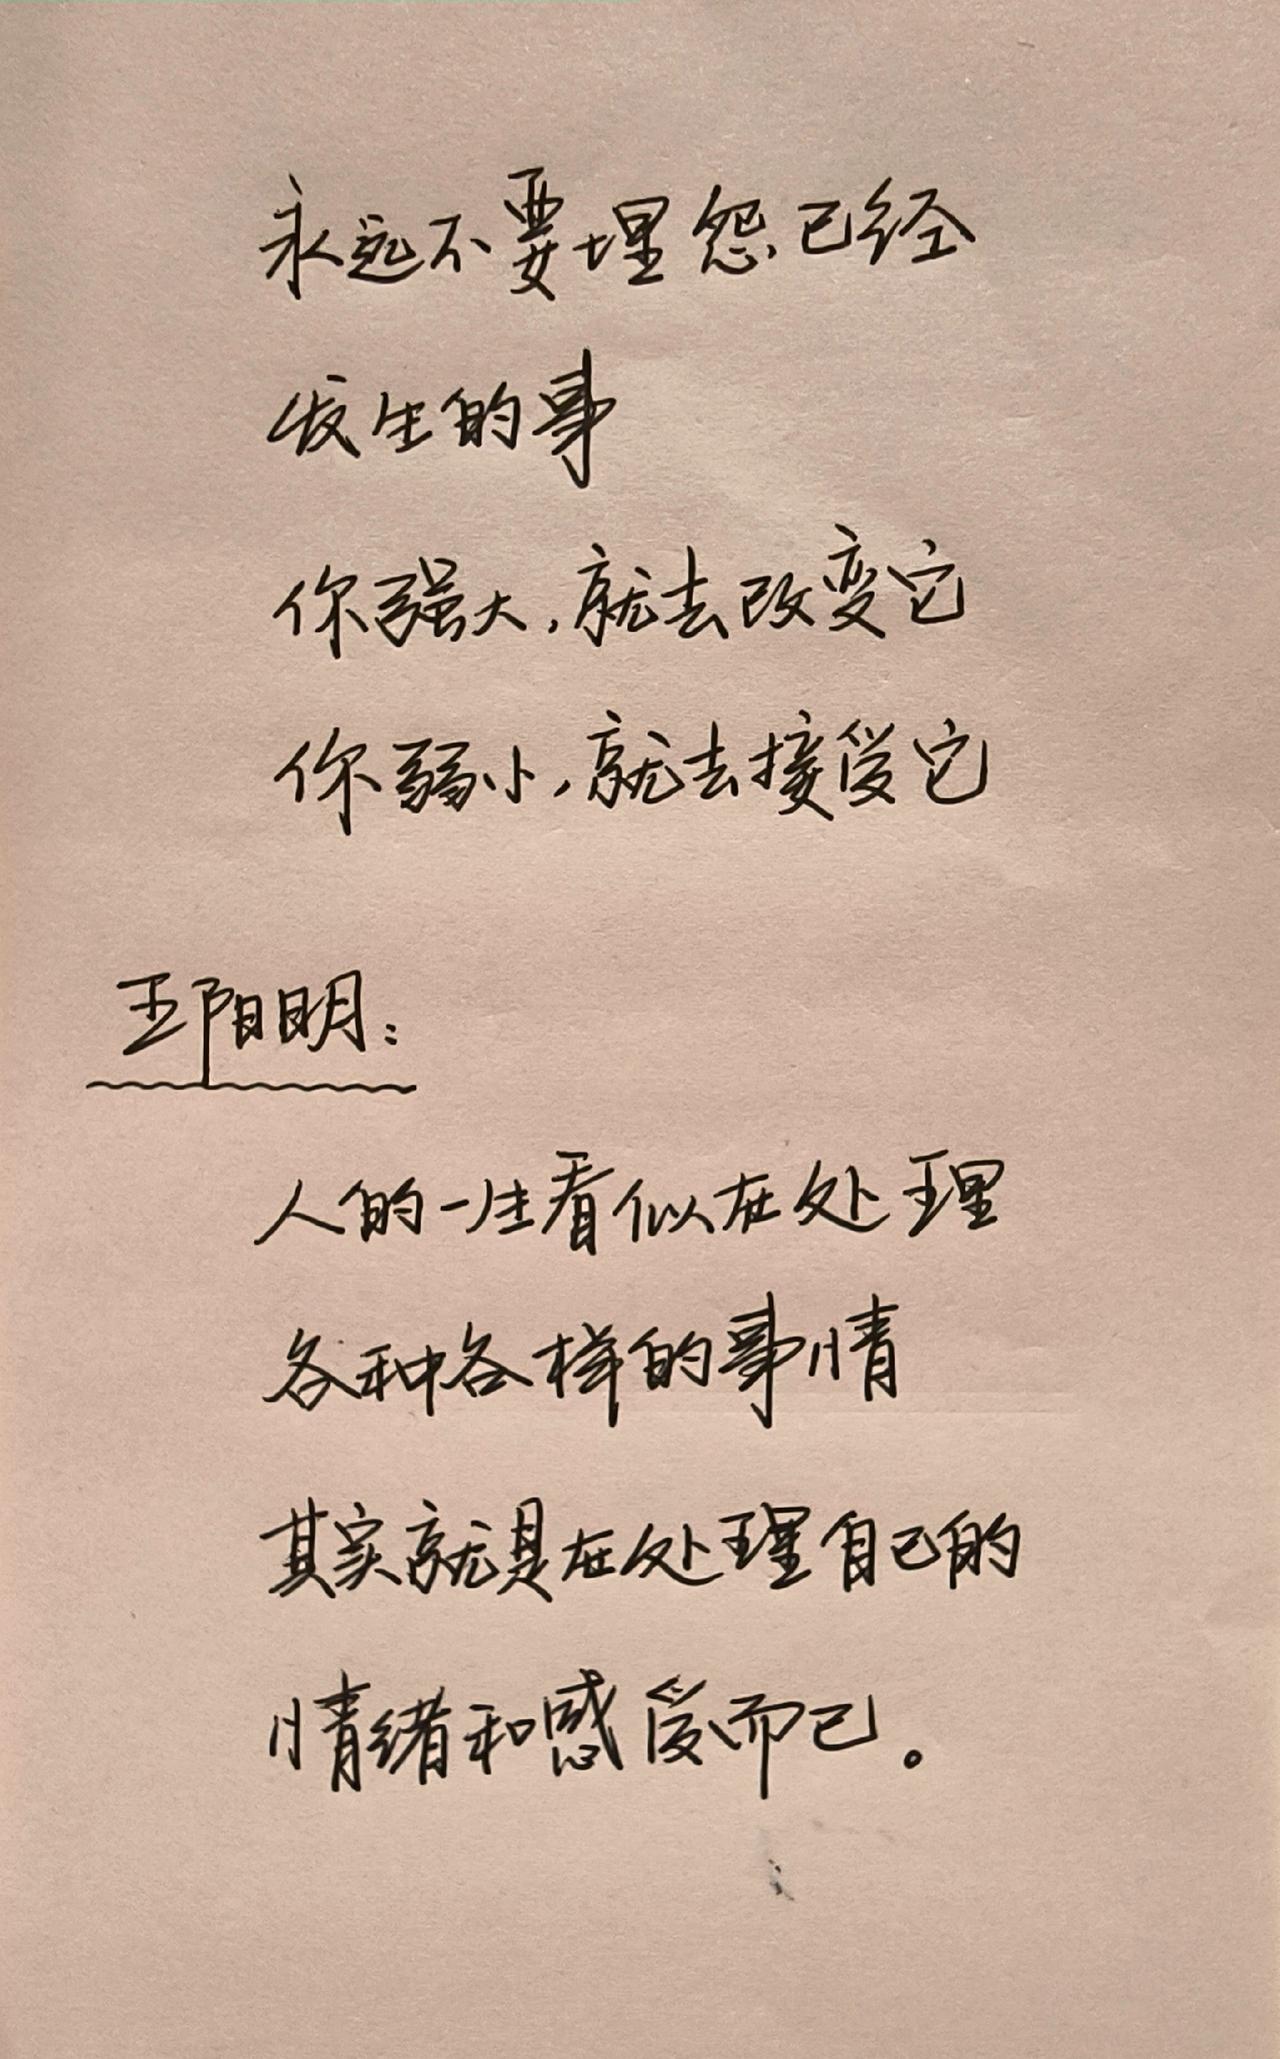 永远不要埋怨已经
发生的事
你强大，就去改变它
你弱小，就去接受它
王阳明：
人的一生看似在处理
各种各样的事情
其实就是在处理自己的
情绪和感受而已。